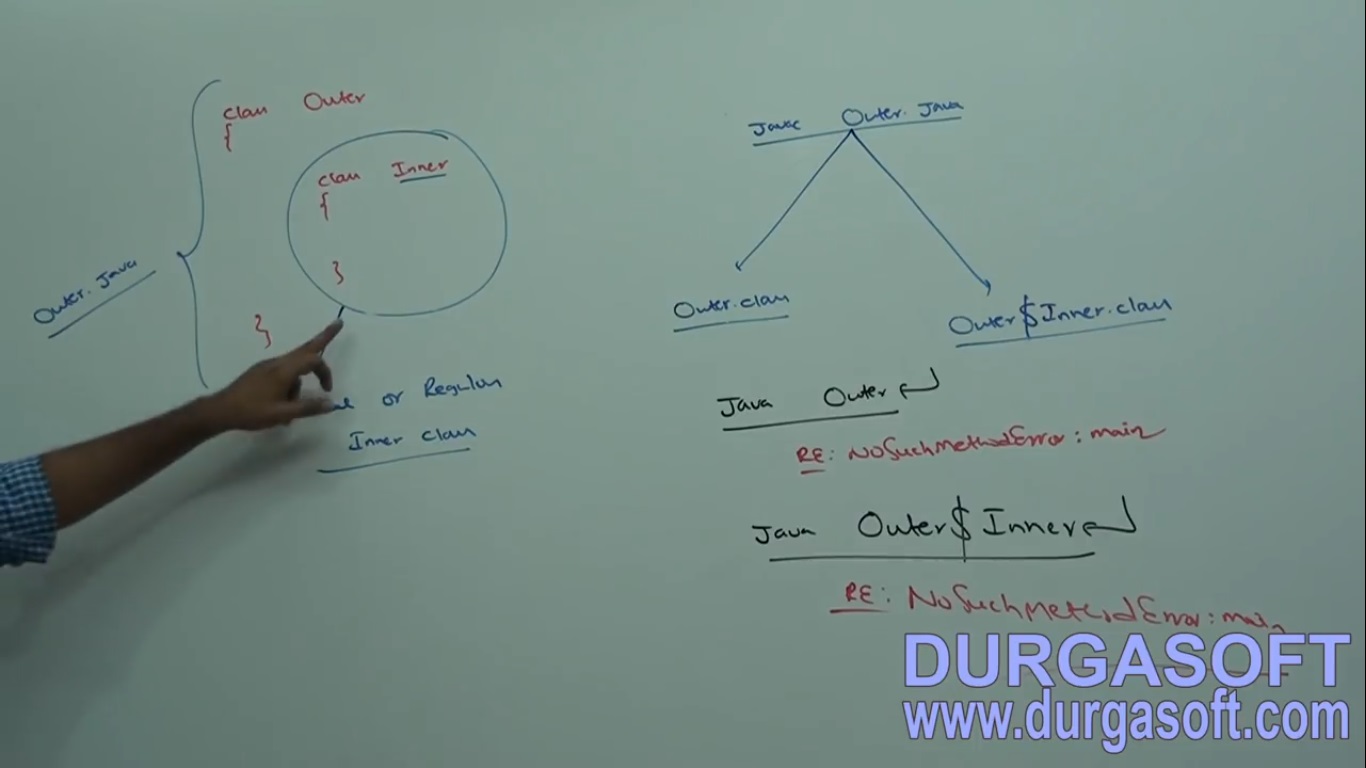 class Outer
{
class Inner
{
}
}
Outer.java
or Regular
Inner class
Javac Outer.java
Outer.class
Outer$Inner.class
Java Outer↵
RE: NoSuchMethodError: main
Java Outer$Inner↵
RE: NoSuchMethodError: main
DURGASOFT
www.durgasoft.com